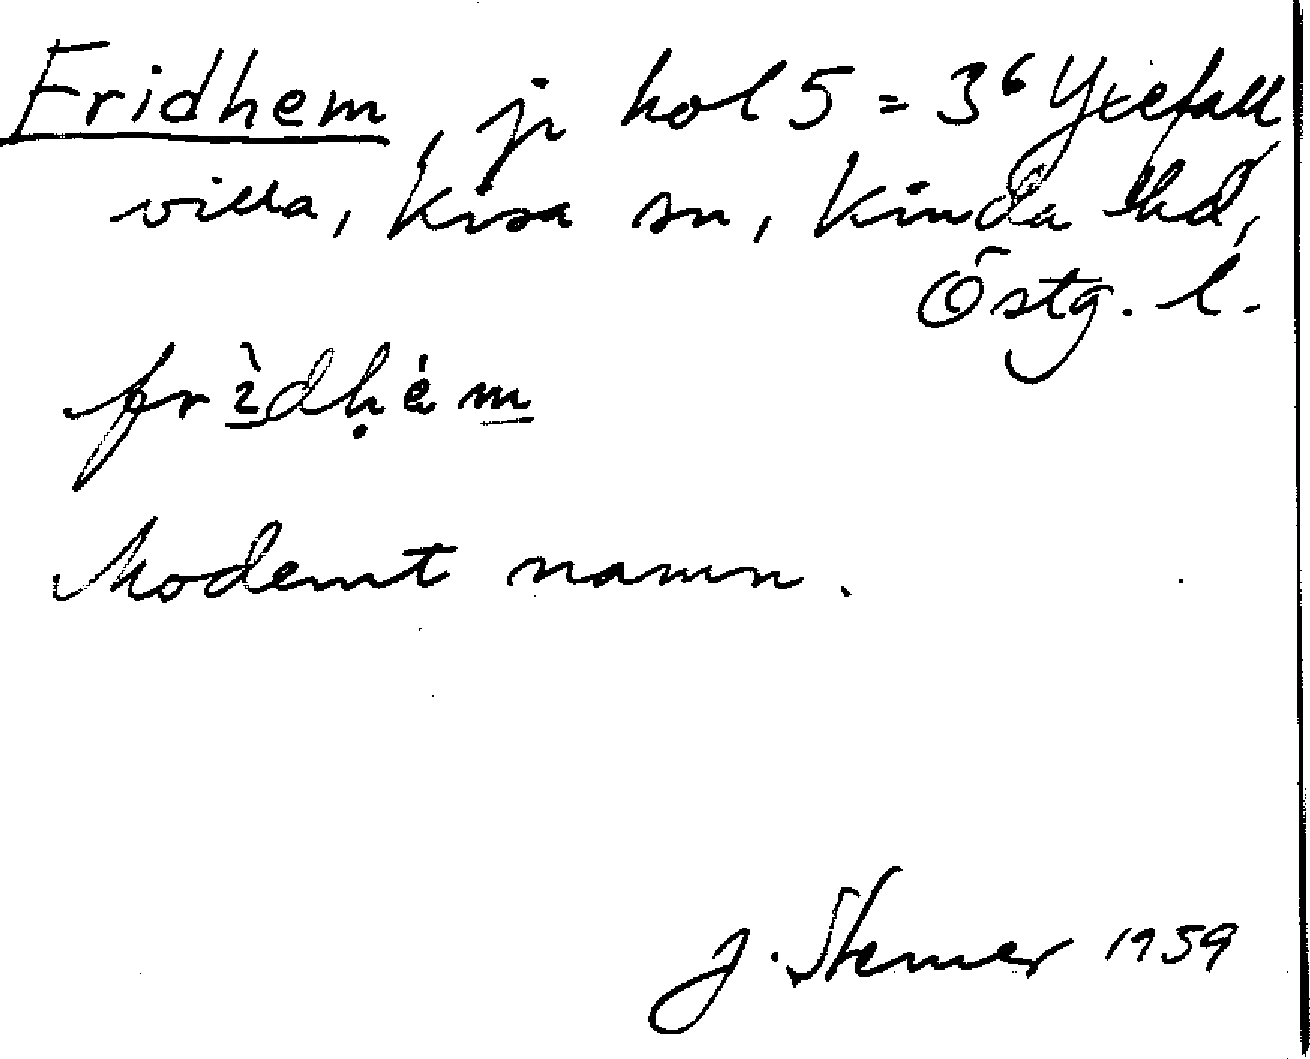 Fridhem, jr hol 5 = 3⁶ Yxefall
villa, Kisa sn, Kinda hd,
Östg. l.
frìdḥém
Modernt namn.
J. Stemer 1959